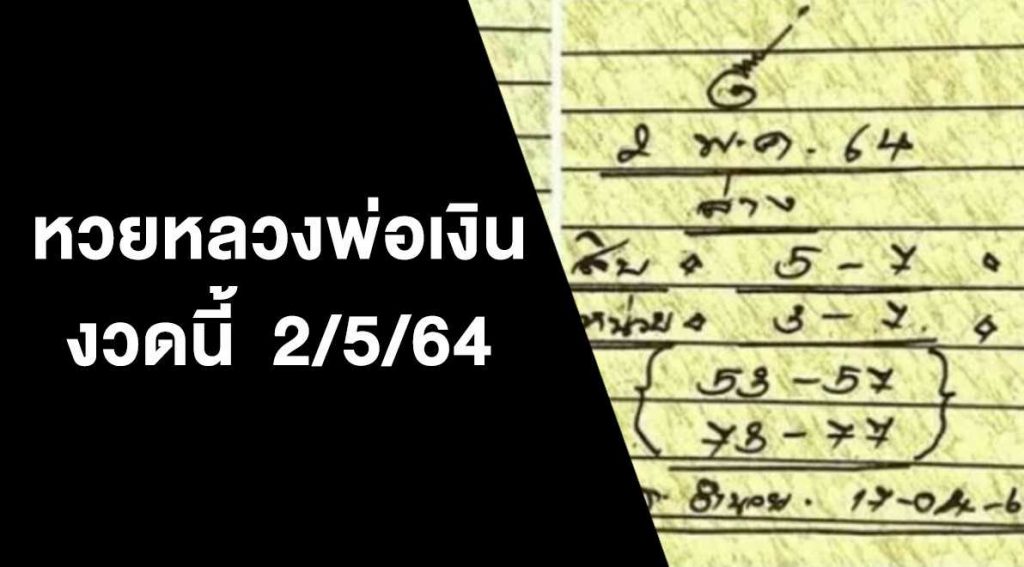 หวยหลวงพ่อเงิน
งวดนี้ 2/5/64
2 พ.ค. 64
ล่าง
สิบ 5 - 7
หน่วย 3 - 7
53 - 57
73 - 77
17-04-6